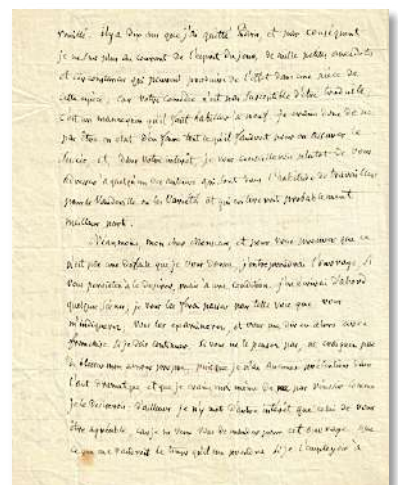 rouillé. il y a dix ans que j'ai quitté Paris, et par conséquent
je ne suis plus au courant de l'esprit du jour, de mille petites anecdotes
et circonstances qui peuvent produire de l'effet dans une pièce de
cette espèce; car votre comédie n'est pas susceptible d'être traduite,
c'est un mannequin qu'il faut habiller à neuf. je crains donc de ne
pas être en état d'en faire tout ce qu'il faudroit pour en assurer le
succès, et, dans votre intérêt, je vous conseillerois plutôt de vous
adresser à quelqu'un des auteurs qui sont dans l'habitude de travailler
pour le Vaudeville ou les Variétés et qui en tireront probablement
meilleur parti.
Néanmoins, mon cher Monsieur, et pour vous prouver que ce
n'est pas une défaite que je vous donne, j'entreprendrai l'ouvrage, si
vous persistez à le désirer, mais à une condition. j'en enverrai d'abord
quelques scènes, je vous les ferai passer par telle voie que vous
m'indiquerez, vous les examinerez, et vous me direz alors avec
franchise si je dois continuer. Si vous ne le pensez pas, ne craignez pas
de blesser mon amour propre, puisque je n'ai aucunes prétentions dans
l'art dramatique et que je crains moi même de ne pas réussir comme
je le desirerois. D'ailleurs je n'y mets d'autre intérêt que celui de vous
être agréable, car je ne veux pas de  pour cet ouvrage. que
ce qui me vaudroit le temps qu'il me prendra si je l'employois à